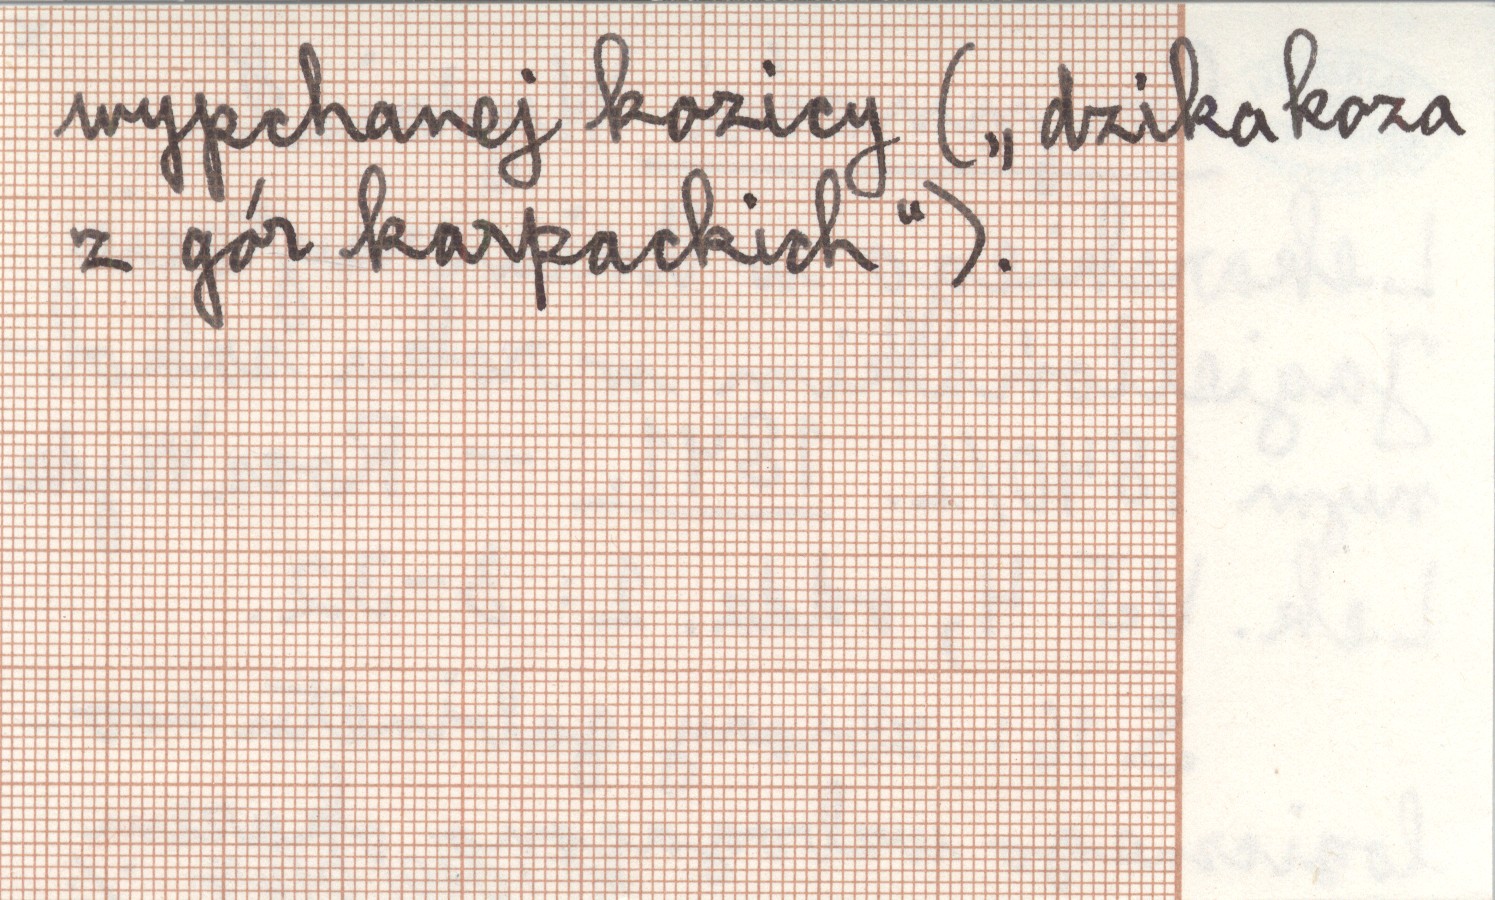 wypchanej kozicy („dzika koza
z gór karpackich“).